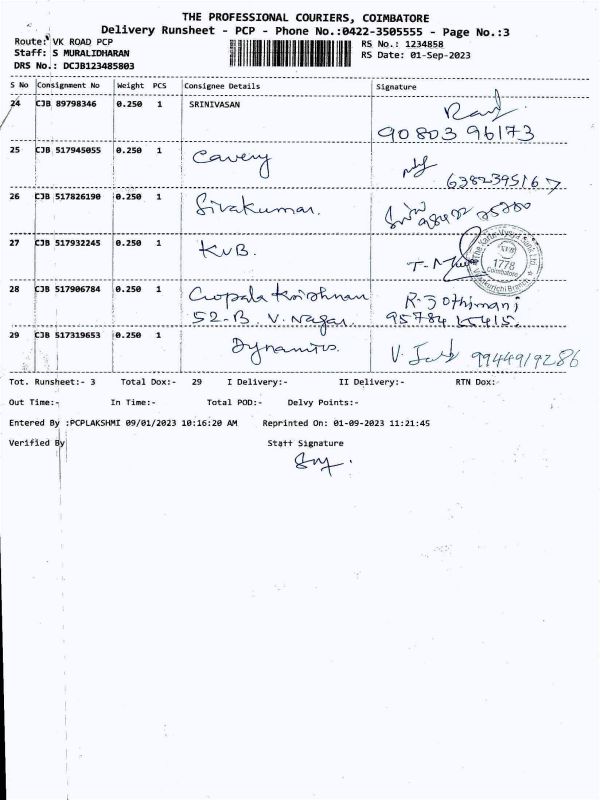 THE PROFESSIONAL COURIERS, COIMBATORE
Delivery Runsheet - PCP - Phone No.:0422-3505555 - Page No.:3
Route: VK ROAD PCP RS No.: 1234858
Staff: S MURALIDHARAN RS Date: 01-Sep-2023
DRS No.: DCJB123485803
S No Consignment No Weight PCS Consignee Details Signature
24 CJB 89798346 0.250 1 SRINIVASAN
90803 96173
25 CJB 517945055 0.250 1 Cavery
6382395167
26 CJB 517826190 0.250 1 Sivakumar.
27 CJB 517932245 0.250 1 KVB.
1778
Coimbatore
28 CJB 517906784 0.250 1 Gopala Krishnan R. Jothimani
52-B V. Nagar. 95784 15415.
29 CJB 517319653 0.250 1 Dynamics. 9944919286
Tot. Runsheet:- 3 Total Dox:- 29 I Delivery:- II Delivery:- RTN Dox:-
Out Time:- In Time:- Total POD:- Delvy Points:-
Entered By :PCPLAKSHMI 09/01/2023 10:16:20 AM Reprinted On: 01-09-2023 11:21:45
Verified By Staff Signature